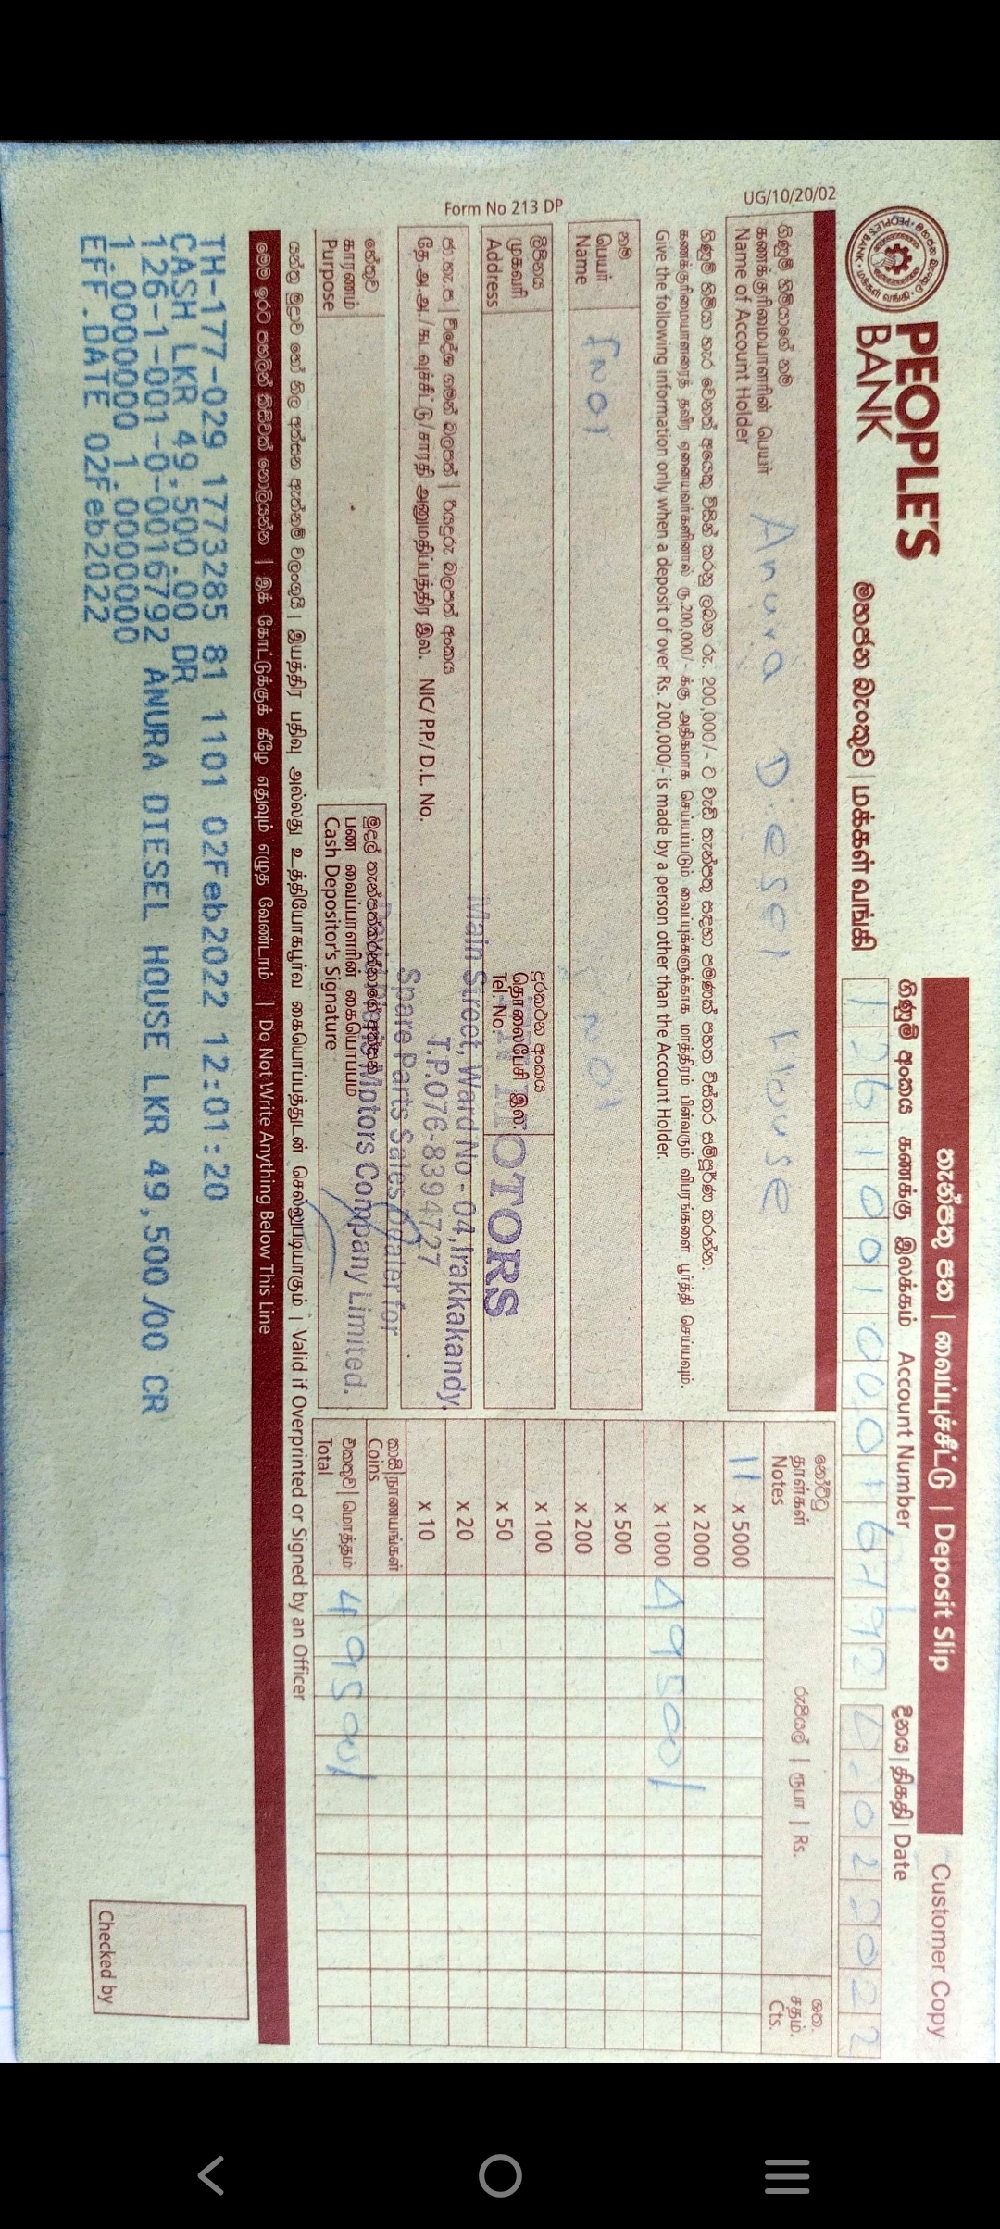 UG/10/20/02
Form No 213 DP
PEOPLE'S
BANK
මහජන බැංකුව | மக்கள் வங்கி
තැන්පතු පත | வைப்புச்சீட்டு | Deposit Slip
Customer Copy
ගිණුම් අංකය கணக்கு இலக்கம் Account Number
දිනය | திகதி | Date
ගිණුම් හිමියාගේ නම
கணக்குரிமையாளரின் பெயர்
Name of Account Holder
Anura Diesel House
ගිණුම් හිමියා හැර වෙනත් අයෙකු විසින් කරනු ලබන රු. 200,000/- ට වැඩි තැන්පතු සඳහා පමණක් පහත විස්තර සම්පූර්ණ කරන්න.
கணக்குரிமையாளரைத் தவிர ஏனையவர்களினால் ரூ.200,000/- க்கு அதிகமாக செய்யப்படும் வைப்புக்களுக்காக மாத்திரம் பின்வரும் விபரங்களை பூர்த்தி செய்யவும்.
Give the following information only when a deposit of over Rs. 200,000/- is made by a person other than the Account Holder.
නම
பெயர்
Name
ලිපිනය
முகவரி
Address
දුරකථන අංකය
தொலைபேசி இல.
Tel No.
MOTORS
Main Street, Ward No - 04, Irakkakandy.
T.P.076-8394727
Spare Parts Sales Dealer for
Motors Company Limited.
ජා.හැ.ප | විදේශ ගමන් බලපත් | රියදුරු බලපත් අංකය
தே.அ.அ./ கடவுச்சீட்டு / சாரதி அனுமதிப்பத்திர இல. NIC/ P.P./ D.L. No.
හේතුව
காரணம்
Purpose
මුදල් තැන්පත්කරන්නාගේ අත්සන
பண வைப்பாளரின் கையொப்பம்
Cash Depositor's Signature
නෝට්ටු
தாள்கள்
Notes
රුපියල් | ரூபா | Rs.
ශත.
சதம்.
Cts.
11 x 5000
x 2000
x 1000 49500/
x 500
x 200
x 100
x 50
x 20
x 10
කාසි|நாணயங்கள்
Coins
එකතුව | மொத்தம்
Total
49500/
යන්ත්‍ර මුද්‍රාව හෝ නිල අත්සන ඇත්නම් වලංගුයි | இயந்திர பதிவு அல்லது உத்தியோகபூர்வ கையொப்பத்துடன் செல்லுபடியாகும் | Valid if Overprinted or Signed by an Officer
මෙම ඉරට පහළින් කිසිවක් නොලියන්න | இக் கோட்டுக்குக் கீழே எதுவும் எழுத வேண்டாம் | Do Not Write Anything Below This Line
TH-177-029 1773285 81 1101 02Feb2022 12:01:20
CASH LKR 49,500.00 DR
126-1-001-0-0016792 ANURA DIESEL HOUSE LKR 49,500/00 CR
1.0000000 1.0000000
EFF.DATE 02Feb2022
Checked by